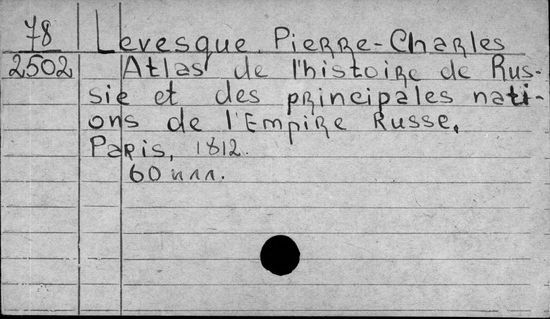 78 Levesque Pierre-Charles
2502 Atlas de l'histoire de Rus-
sie et des principales nati-
ons de l'Empire Russe.
Paris, 1812.
60 илл.